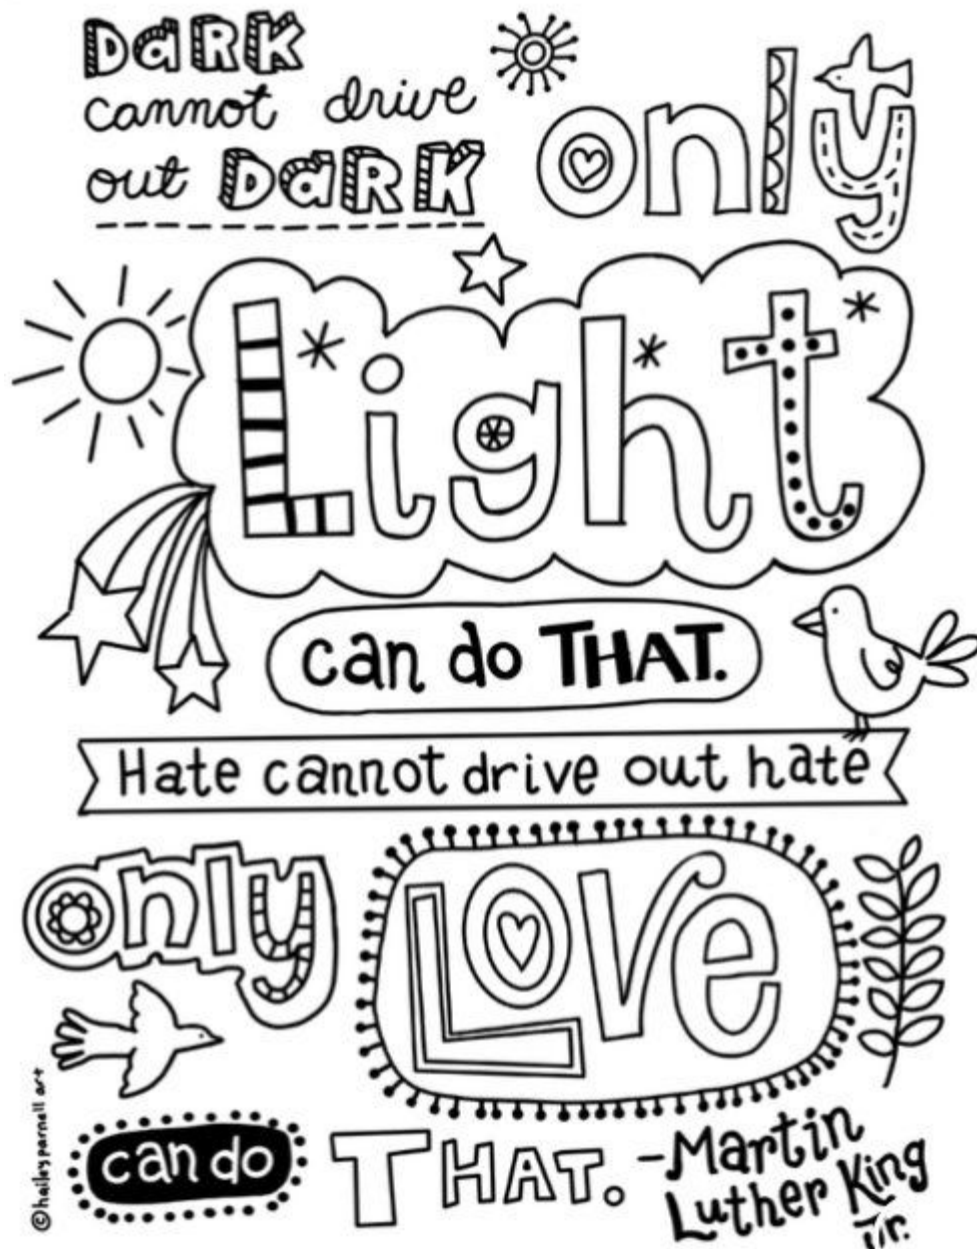 DaRK
cannot drive
out DaRK
only
Light
can do THAT.
Hate cannot drive out hate
only
Love
can do
THAT.
-Martin
Luther King
Jr.
©haileyparnell art